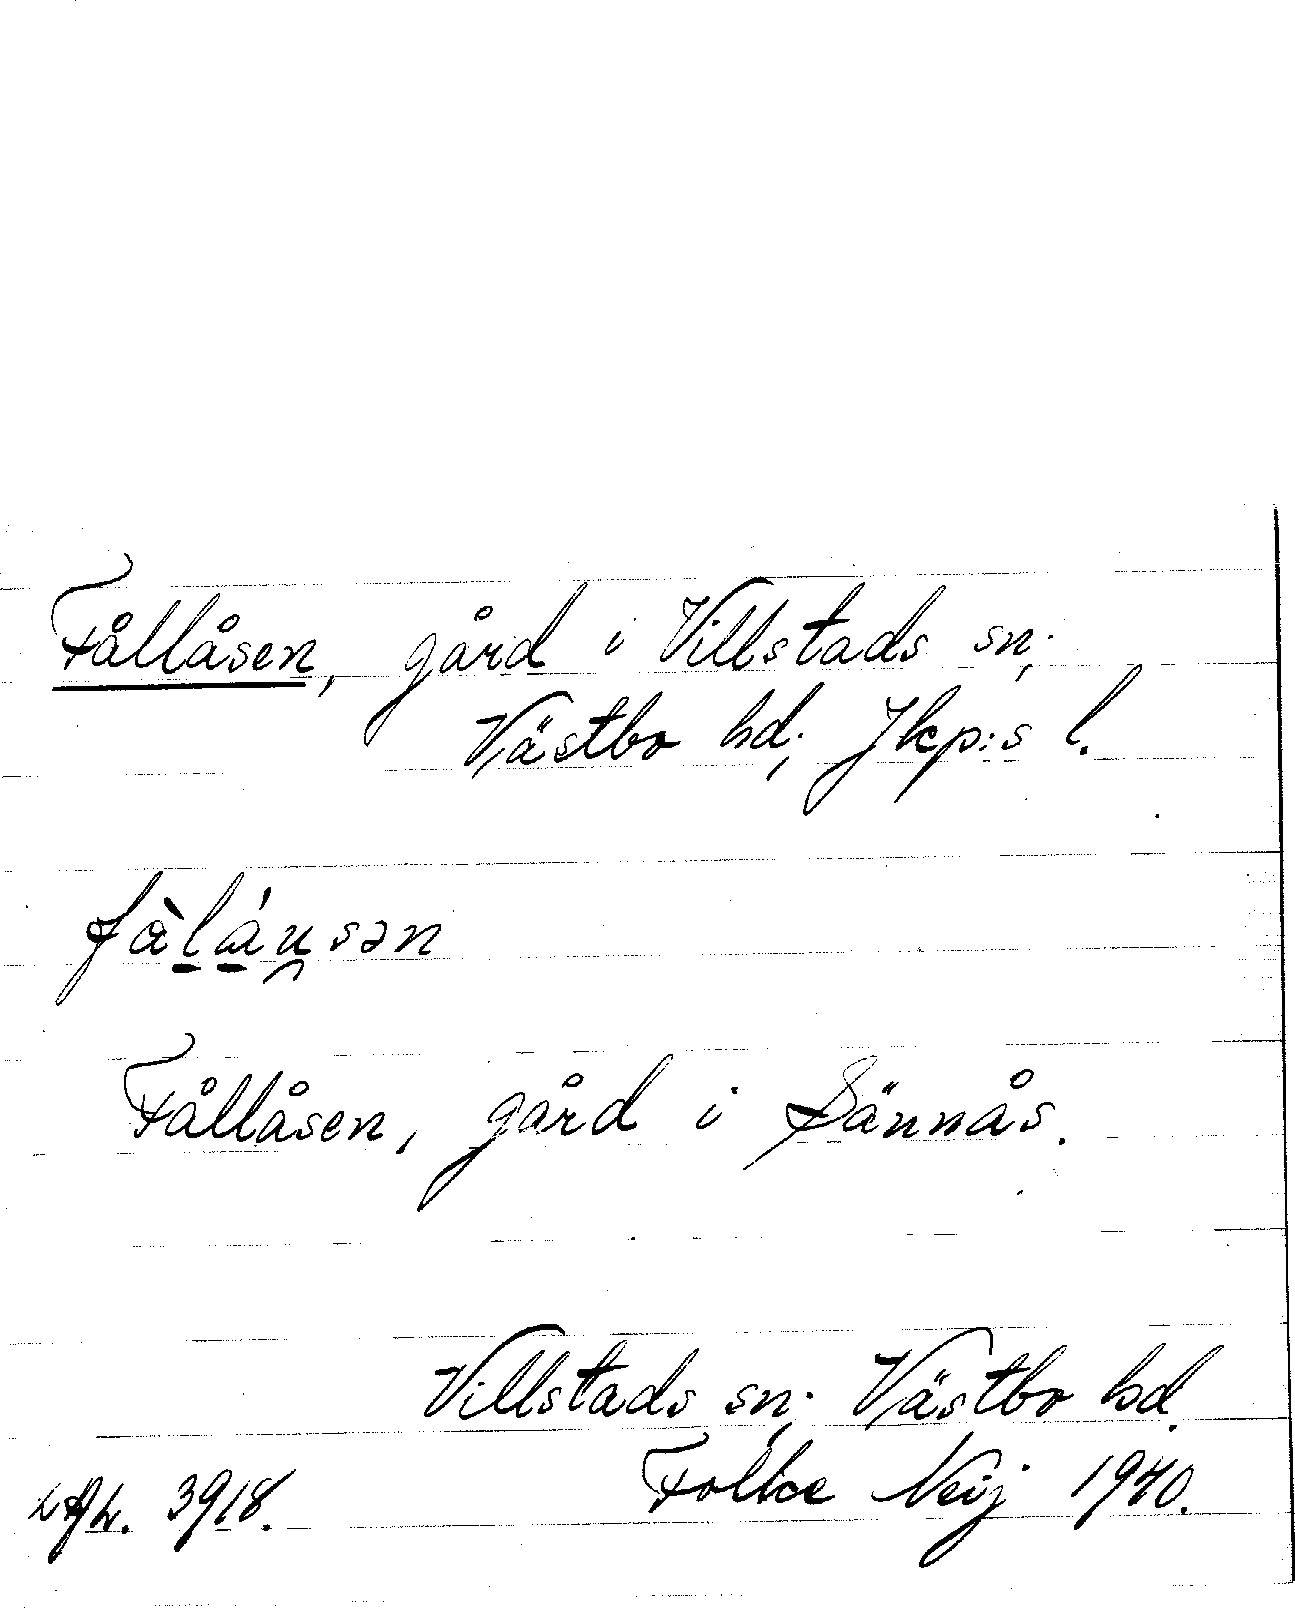 Fållåsen, gård i Villstads sn;
Västbo hd; Jkp:s l.
fàláusən
Fållåsen, gård i Sännås.
Villstads sn; Västbo hd.
Folke Neij 1940.
3918.